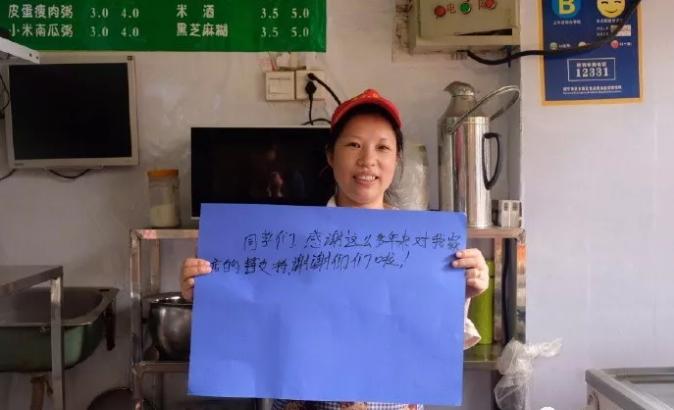 皮蛋瘦肉粥 3.0 4.0 米 酒 3.5 5.0
小米南瓜粥 3.0 4.0 黑芝麻糊 3.5 5.0
B
12331
同学们！感谢这么多年来对我家
店的支持,谢谢你们啦！